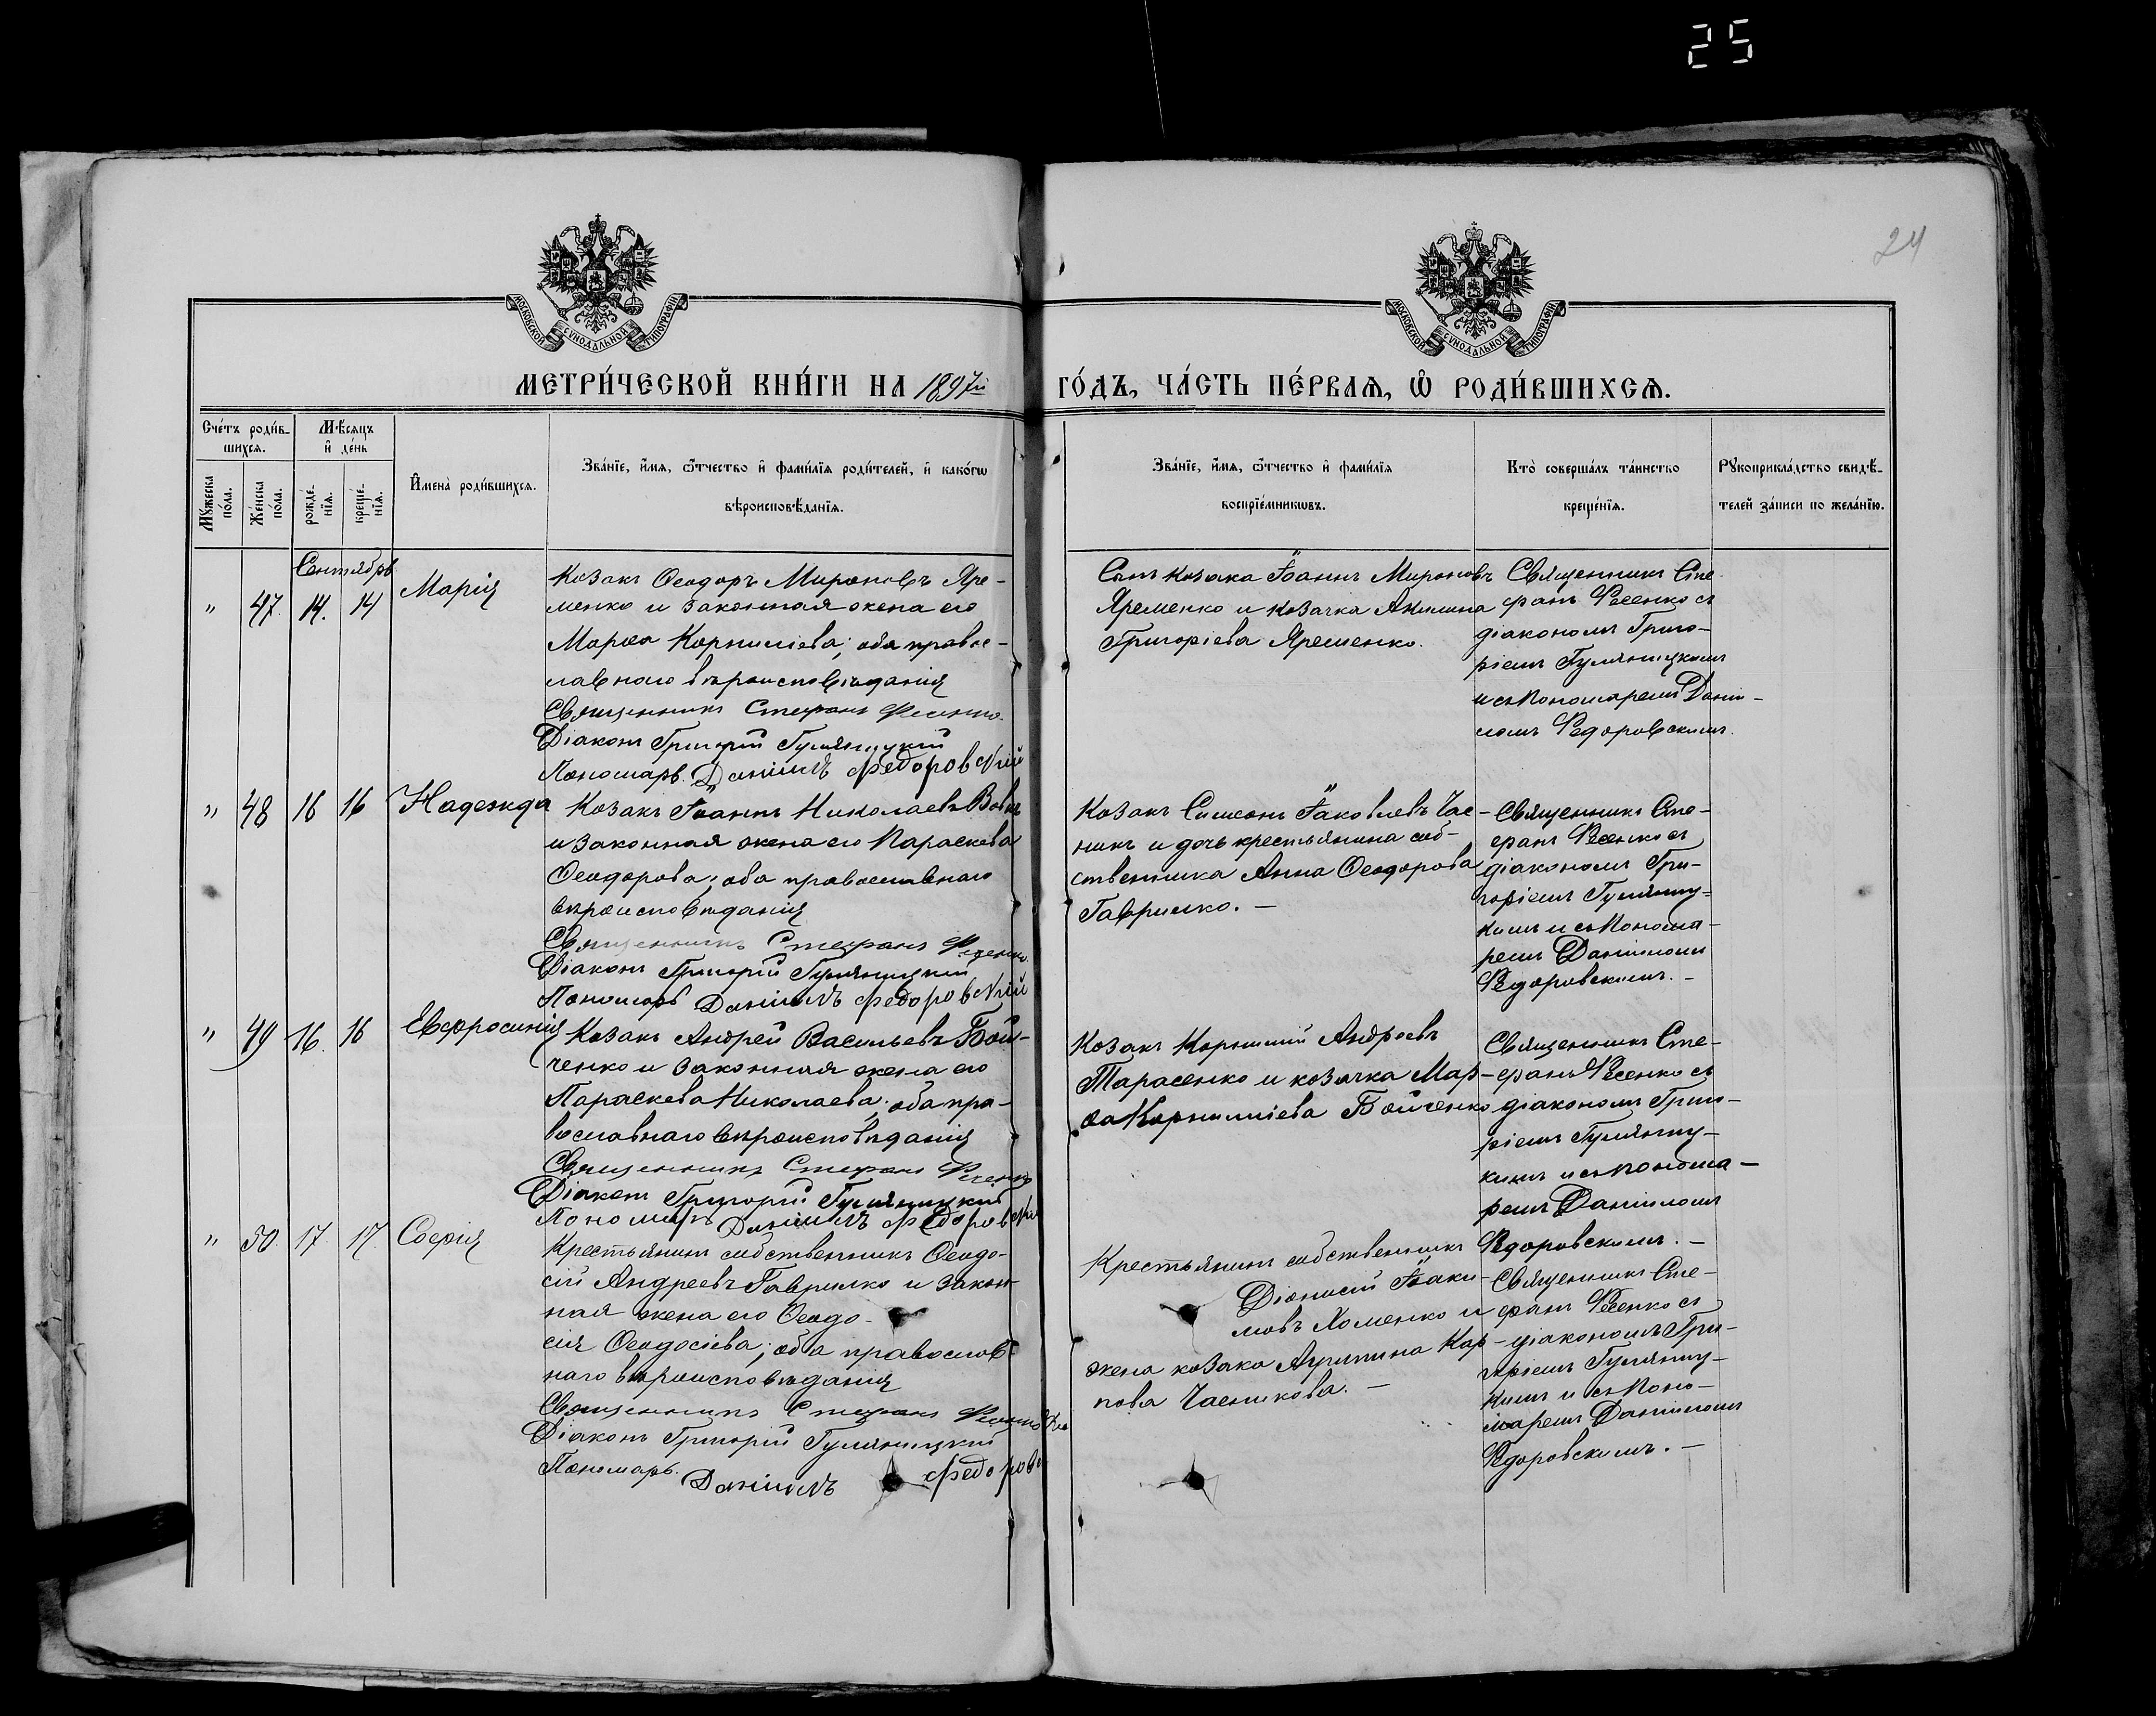 25
24
МОСКОВСКОЙ СѴНОДАЛЬНОЙ ТИПОГРАФІИ
МОСКОВСКОЙ СѴНОДАЛЬНОЙ ТИПОГРАФІИ
МЕТРИ́ЧЕСКОЙ КНИ́ГИ НА 1897й
ГО́ДЪ, ЧА́СТЬ ПЕ́РВАѦ, Ѽ РОДИ́ВШИХСѦ.
Сче́тъ роди́в-
шихсѧ.
Мѣ́сѧцъ
и҆ де́нь
Мꙋ́жеска
по́ла.
Же́нска
по́ла.
рожде́-
нїѧ.
креще́-
нїѧ.
И҆мена̀ роди́вшихсѧ.
Зва́нїе, и҆́мѧ, ѻ҆́тчество и҆ фами́лїѧ роди́телей, и҆ како́гѡ
вѣроисповѣ́данїѧ.
Зва́нїе, и҆́мѧ, ѻ҆́тчество и҆ фами́лїѧ
воспрїе́мникѡвъ.
Кто̀ соверша́лъ та́инство
креще́нїѧ.
Рꙋкоприкла́дство свидѣ́-
телей за́писи по жела́нїю.
Сентябрь
" 47. 14. 14 Марія
Козакъ Ѳеодоръ Мироновъ Яре-
менко и законная жена его
Марѳа Корнилієва; оба правос-
лавнаго вѣроисповѣданія
Священникъ Стефанъ Фесенко.
Діаконъ Григорій Гуляницкій
Пономарь Даніилъ Федоровскій
Сынъ козака Іоаннъ Мироновъ
Яременко и козачка Акилина
Григоріева Яременко.
Священникъ Сте-
фанъ Фесенко съ
діакономъ Григо-
ріемъ Гуляницкимъ
и съ пономаремъ Дані-
иломъ Федоровскимъ.
" 48 16 16 Надежда
Козакъ Іоаннъ Николаевъ Вовкъ
и законная жена его Параскева
Ѳеодорова; оба православнаго
вѣроисповѣданія
Священникъ Стефанъ Фесенко.
Діаконъ Григорій Гуляницкій
Пономарь Даніилъ Федоровскій
Козакъ Симеонъ Іаковлевъ Час-
никъ и дочь крестьянина соб-
ственника Анна Ѳеодорова
Гаврилко. —
Священникъ Сте-
фанъ Фесенко съ
діакономъ Гри-
горіемъ Гуляниц-
кимъ и съ понома-
ремъ Даніиломъ
Федоровскимъ. —
" 49 16. 16 Евфросинія
Козакъ Андрей Васильевъ Бой-
ченко и законная жена его
Параскева Николаева; оба пра-
вославнаго вѣроисповѣданія
Священникъ Стефанъ Фесенко
Діаконъ Григорій Гуляницкій
Пономарь Даніилъ Федоровскій
Козакъ Корнилий Андреевъ
Тарасенко и козачка Мар-
ѳа Корнилиева Бойченко
Священникъ Сте-
фанъ Фесенко съ
діакономъ Григо-
ріемъ Гуляниц-
кимъ и съ понома-
ремъ Даніиломъ
Федоровскимъ. —
" 50. 17. 17. Софія
Крестьянинъ собственникъ Ѳеодо-
сій Андреевъ Гаврилко и закон-
ная жена его Ѳеодо-
сія Ѳеодосіева; оба православ-
наго вѣроисповѣданія
Священникъ Стефанъ Фесенко
Діаконъ Григорій Гуляницкій
Пономарь. Даніилъ Федоров
Крестьянинъ собственникъ
Діонисій Іоаки-
мовъ Хоменко и
жена козака Агрипина Кар-
пова Часникова. —
Священникъ Сте-
фанъ Фесенко съ
діакономъ Гри-
горіемъ Гуляниц-
кимъ и съ поно-
маремъ Даніиломъ
Федоровскимъ. —